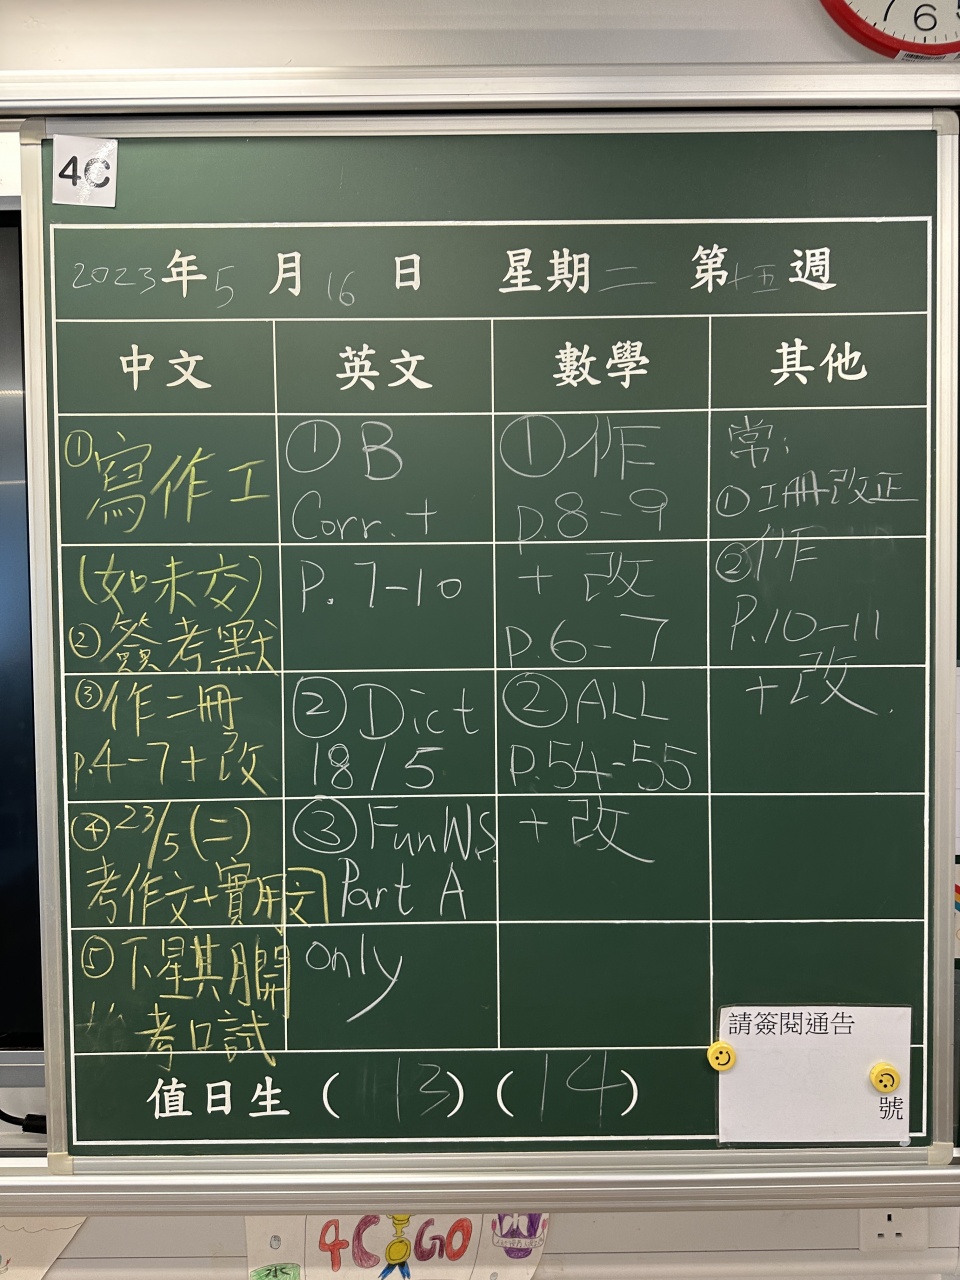 7 6 5
4C
2023年5月16日 星期二 第十五週
中文 英文 數學 其他
①寫作工
(如未交)
②簽考默
③作二冊
p.4-7+改
④23/5(二)
考作文+實用文
⑤下星期開
始 考口試
①B
Corr. +
P. 7-10
②Dict
18/5
③FunW.S
Part A
only
①作
p.8-9
+ 改
p.6-7
②ALL
p.54-55
+ 改
常:
①工冊改正
②作
P.10-11
+ 改.
值日生 ( 13 ) ( 14 )
請簽閱通告
號
4C GO
水